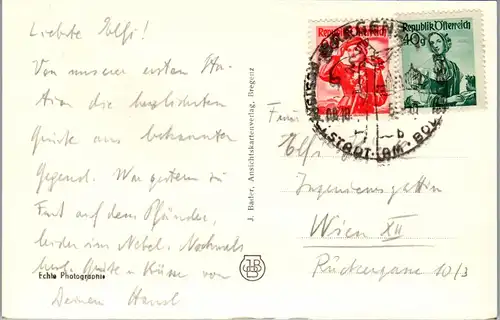 Liebste Elfi!
Von unserer ersten Sta-
tion die herzlichsten
Grüße aus bekannter
Gegend. War gestern zu
Fuß auf dem Pfänder,
leider im Nebel. Nochmals
herzl. Grüße u Küsse von
Deinem Hansl
Echte Photographie
J. Basler, Ansichtskartenverlag, Bregenz
Republik Österreich
Republik Österreich
40g
BREGENZ
FESTSTADT AM BODENSEE
b
Frau
Elfi
Ingenieursgattin
Wien XII
Rückergasse 10/3